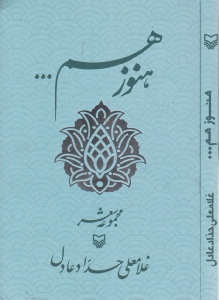 هنوز هم...
مجموعه شعر
غلامعلی حدّاد عادل
هنوز هم...
غلامعلی حدّاد عادل